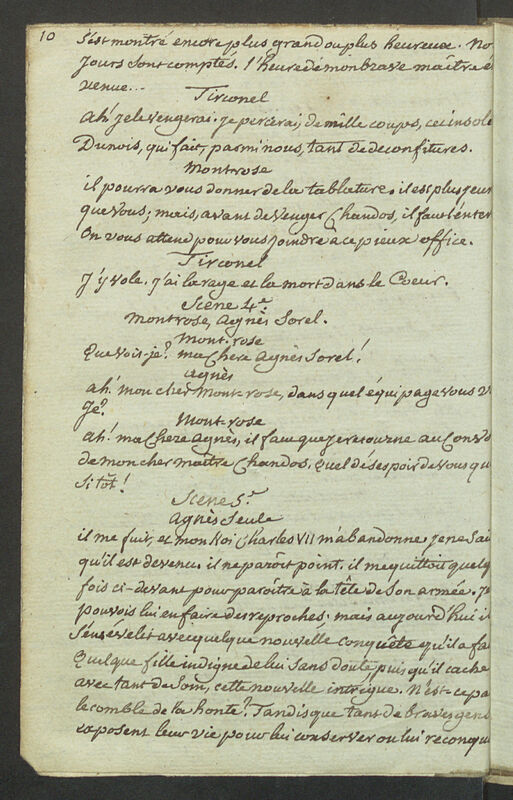 10
s'est montré encore plus grand ou plus heureux. No
jours sont comptés. l'heure de mon brave maître é
venue...
Tirconel
Ah! je le vengerai. je percerai de mille coups, cet insole
Dunois, qui fait, parmi nous, tant de déconfitures.
Montrose
il pourra vous donner de la tablature. il est plus jeun
que vous; mais, avant de venger Chandos, il faut l'enter
On vous attend pour vous joindre à ce pieux office.
Tirconel
J'y vole. j'ai la rage et la mort dans le Coeur.
Scene 4.e
Montrose, Agnès Sorel.
Mont-rose
Que vois-je? ma Chere Agnès Sorel!
Agnès
ah! mon cher Mont-rose, dans quel équipage vous v
je?
Mont-rose
Ah! ma Chere Agnès, il faut que je retourne au Convo
de mon cher maître Chandos. quel désespoir de vous qu
si tôt!
Scene 5.e
Agnès Seule
il me fuit, et mon Roi Charles VII m'abandonne. je ne sai
qu'il est devenu. il ne paroît point. il me quittoit quelq
fois ci-devant pour paroître à la tête de son armée. je
pouvois lui en faire des reproches; mais aujourd'hui il
s'ensévelit avec quelque nouvelle conquête qu'il a fa
Quelque fille indigne de lui sans doute puis qu'il cache
avec tant de soin, cette nouvelle intrigue. N'est-ce pa
le comble de la honte? Tandis que tant de braves gens
exposent leur vie pour lui conserver ou lui reconqu